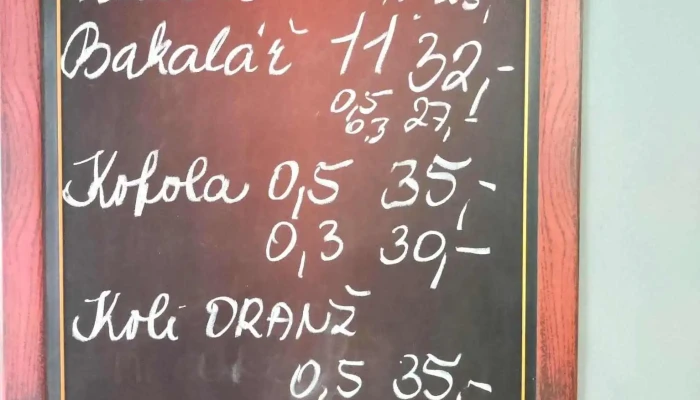 Bakalář 11 32,-
0,5
0,3 27,-
Kofola 0,5 35,-
0,3 30,-
Koli ORANŽ
0,5 35,-